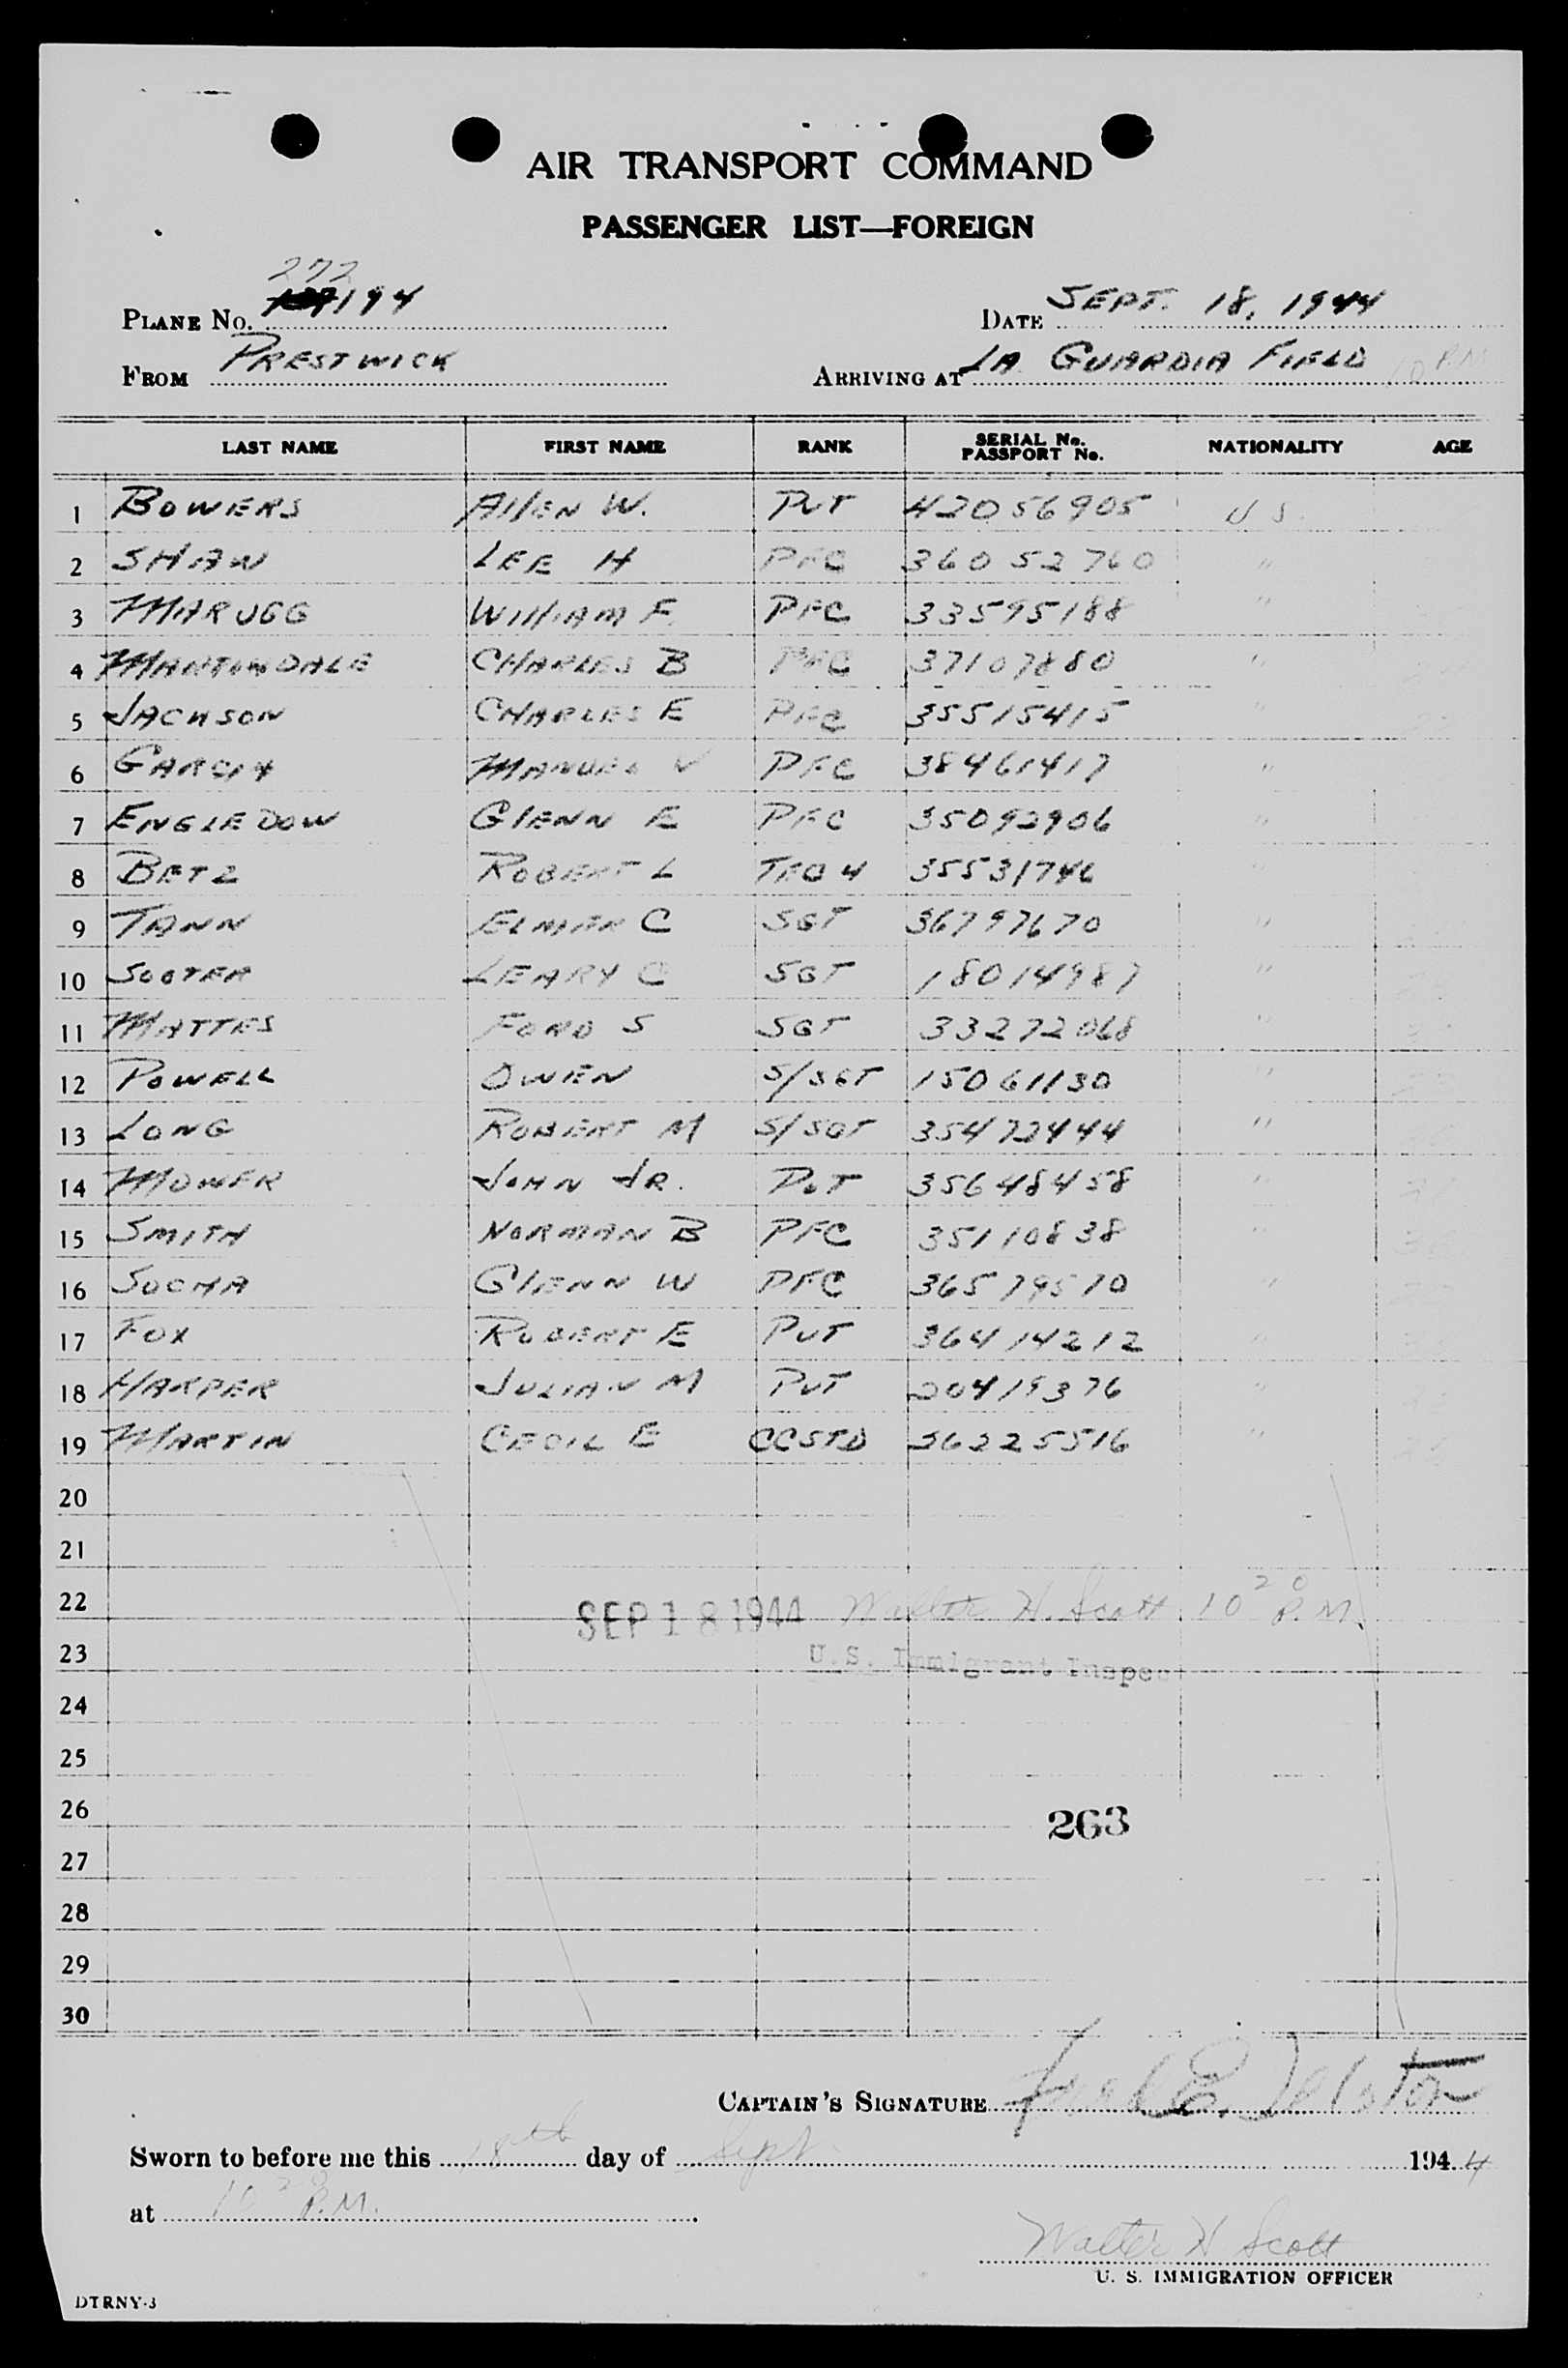 AIR TRANSPORT COMMAND
PASSENGER LIST—FOREIGN
272
PLANE No. 194
DATE SEPT. 18, 1944
FROM PRESTWICK
ARRIVING AT LA GUARDIA FIELD 10 P.M
LAST NAME FIRST NAME RANK SERIAL No. PASSPORT No. NATIONALITY AGE
1 BOWERS AllEN W. PVT 42056905 U S.
2 SHAW LEE H PFC 36052760 "
3 MARUGG WilliAM F. PFC 33595188 "
4 MARTINDALE CHARLES B PFC 37107880 "
5 JACKSON CHARLES E PFC 35515415 "
6 GARCIA MANUEL V PFC 38461417 "
7 ENGLEDOW GlENN E PFC 35092906 "
8 BETZ ROBERT L TEC 4 35531746 "
9 TANN ELMER C SGT 36797670 "
10 SOOTER LEARY C SGT 18014987 "
11 MATTES FORD S SGT 33272068 "
12 POWELL OWEN S/SGT 15061130 "
13 LONG ROBERT M S/SGT 35472444 "
14 MOWER JOHN JR. PVT 35648458 "
15 SMITH NORMAN B PFC 35110838 " 36
16 SOCHA GlENN W PFC 36579570 "
17 FOX ROBERT E PVT 36414212 "
18 HARPER JULIAN M PVT 20419376 "
19 MARTIN CECIL E CCSTD 36225516 "
20
21
22 SEP 18 1944 Walter H. Scott 10 20 P.M.
23 U.S. Immigrant Inspect
24
25
26 263
27
28
29
30
CAPTAIN'S SIGNATURE
Sworn to before me this 18th day of Sept 1944
at 10 20 P.M.
Walter H Scott
U. S. IMMIGRATION OFFICER
DTRNY-3